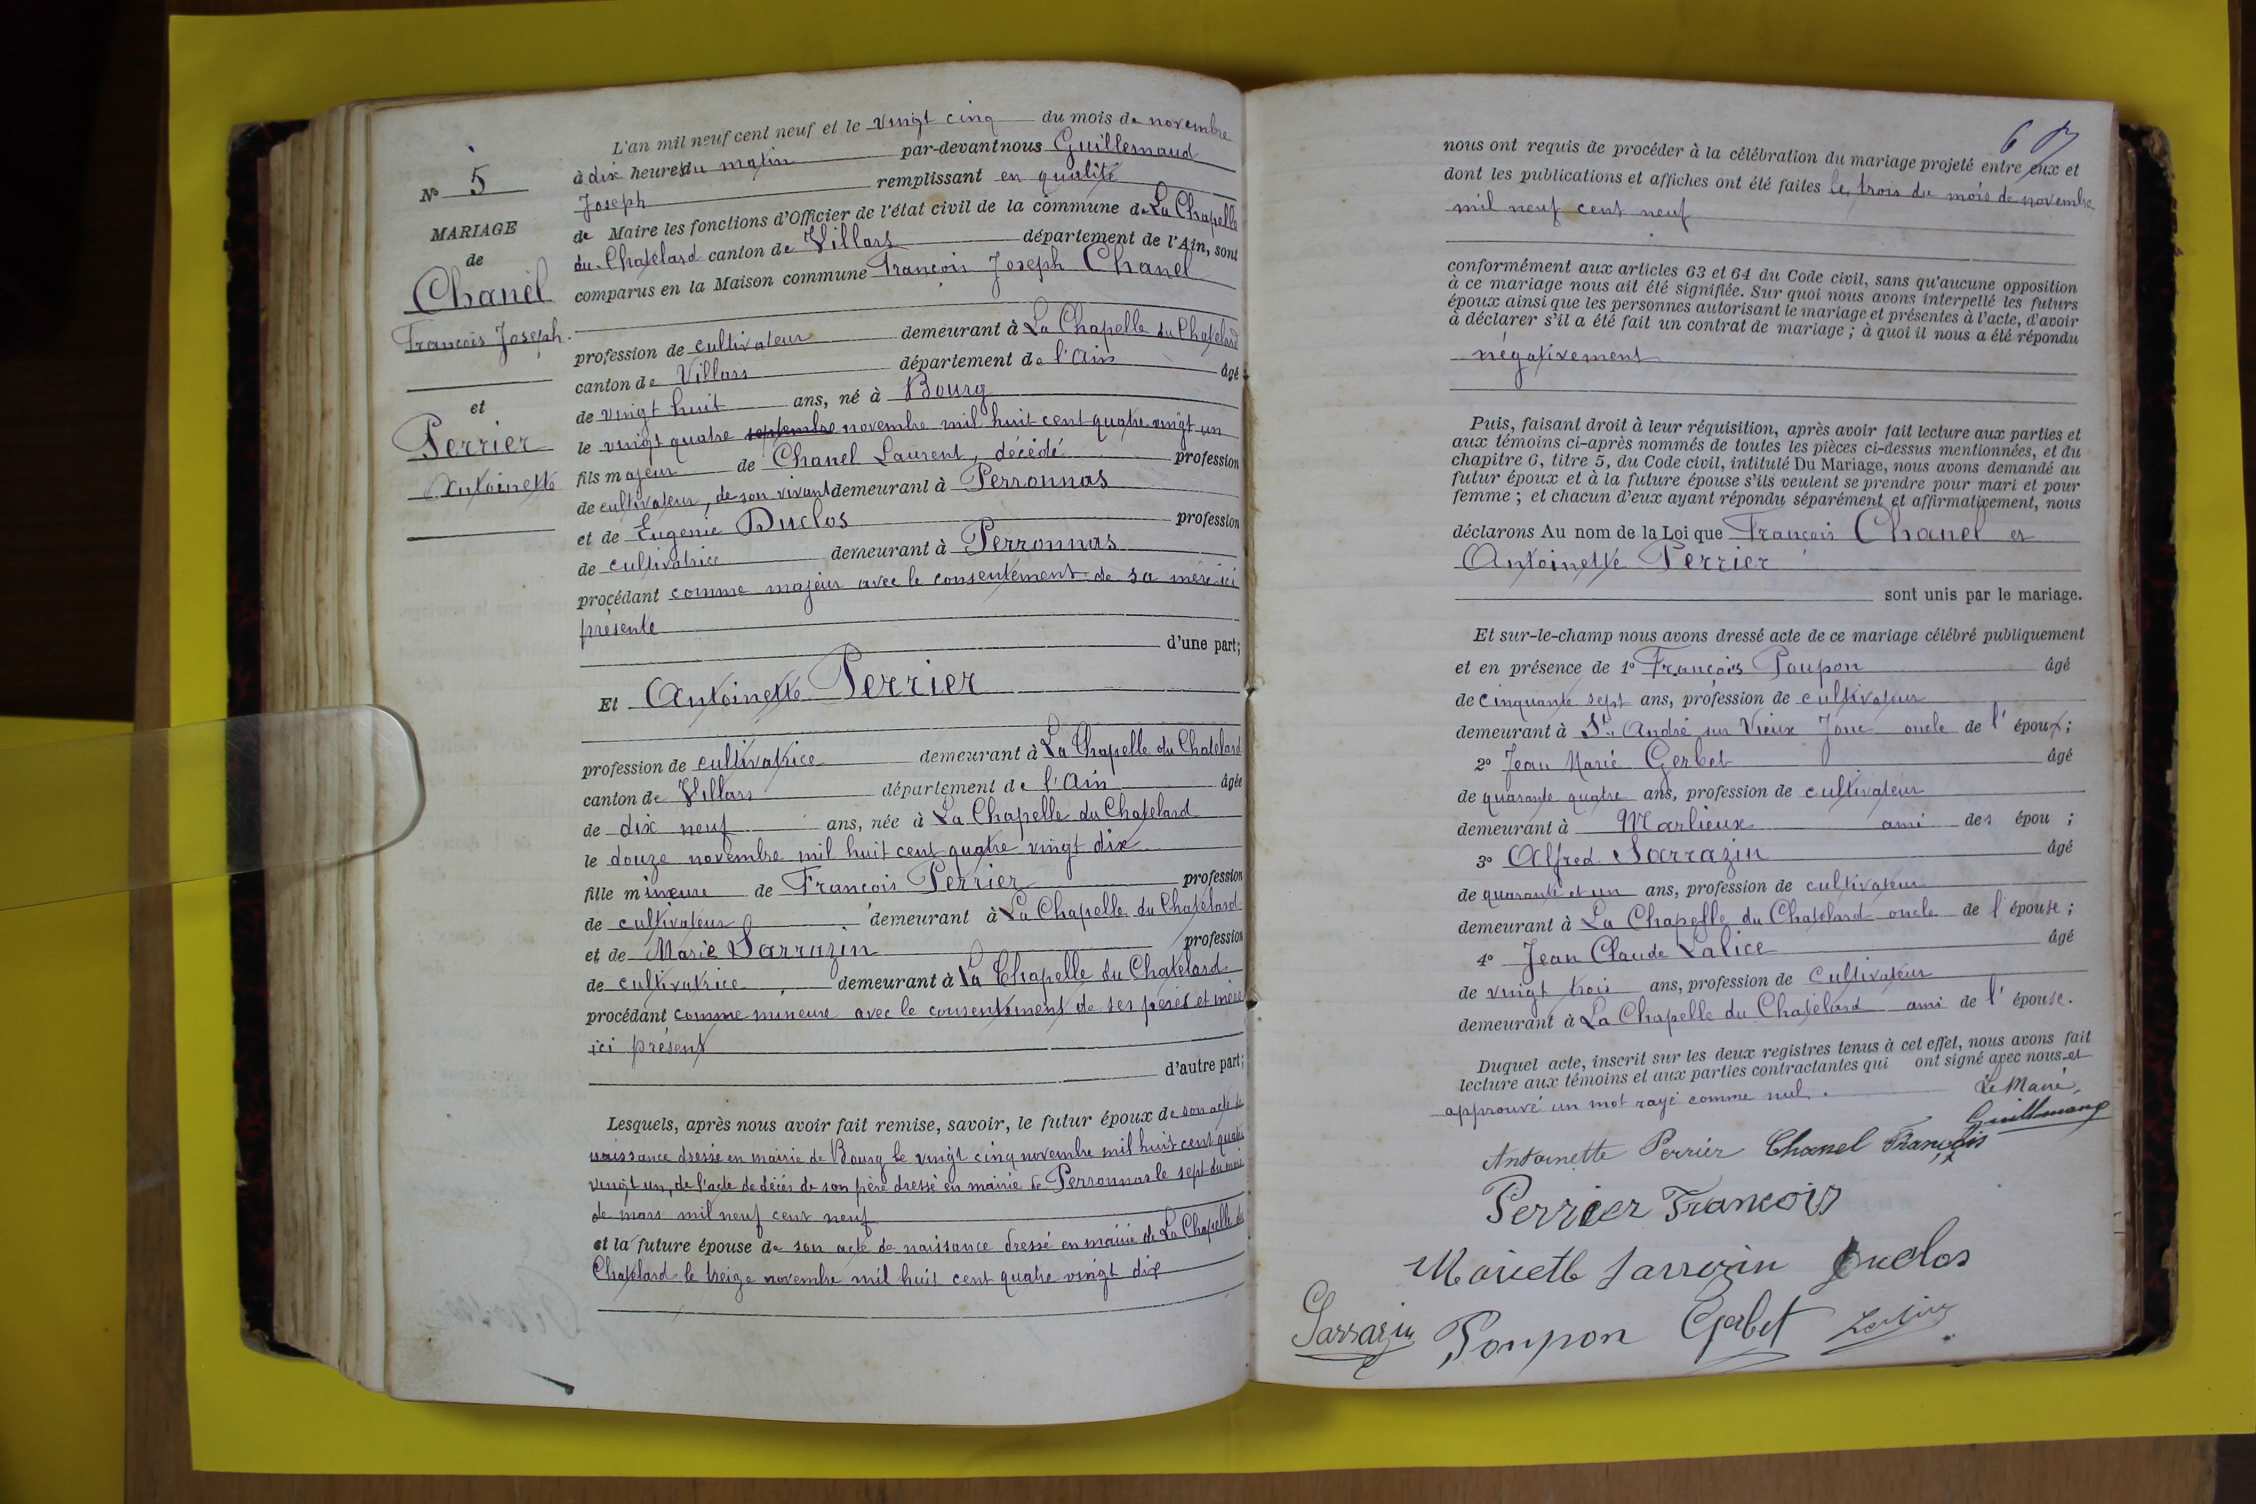 N° 5
MARIAGE
de
Chanel
François Joseph
et
Perrier
Antoinette
L'an mil neuf cent neuf et le vingt cinq du mois de novembre
à dix heures du matin par-devant nous Guillemaud
Joseph remplissant en qualité
de Maire les fonctions d'Officier de l'état civil de la commune de La Chapelle
du Chatelard canton de Villars département de l'Ain, sont
comparus en la Maison commune François Joseph Chanel
profession de cultivateur demeurant à La Chapelle du Chatelard
canton de Villars département de l'Ain âgé
de vingt huit ans, né à Bourg
le vingt quatre septembre novembre mil huit cent quatre vingt un
fils majeur de Chanel Laurent, décédé profession
de cultivateur, de son vivant demeurant à Perronnas
et de Eugenie Duclos profession
de cultivatrice demeurant à Perronnas
procédant comme majeur avec le consentement de sa mère ici
présente
d'une part;
Et Antoinette Perrier
profession de cultivatrice demeurant à La Chapelle du Chatelard
canton de Villars département de l'Ain âgée
de dix neuf ans, née à La Chapelle du Chatelard
le douze novembre mil huit cent quatre vingt dix
fille mineure de François Perrier profession
de cultivateur demeurant à La Chapelle du Chatelard
et de Marie Sarrazin profession
de cultivatrice demeurant à La Chapelle du Chatelard
procédant comme mineure avec le consentement de ses pères et mère
ici présent
d'autre part;
Lesquels, après nous avoir fait remise, savoir, le futur époux de son acte de
naissance dressé en mairie de Bourg le vingt cinq novembre mil huit cent quatre
vingt un, de l'acte de décès de son père dressé en mairie de Perronnas le sept du mois
de mars mil neuf cent neuf
et la future épouse de son acte de naissance dressé en mairie de La Chapelle du
Chatelard le treize novembre mil huit cent quatre vingt dix
nous ont requis de procéder à la célébration du mariage projeté entre eux et
dont les publications et affiches ont été faites le trois du mois de novembre
mil neuf cent neuf
conformément aux articles 63 et 64 du Code civil, sans qu'aucune opposition
à ce mariage nous ait été signifiée. Sur quoi nous avons interpellé les futurs
époux ainsi que les personnes autorisant le mariage et présentes à l'acte, d'avoir
à déclarer s'il a été fait un contrat de mariage; à quoi il nous a été répondu
négativement
Puis, faisant droit à leur réquisition, après avoir fait lecture aux parties et
aux témoins ci-après nommés de toutes les pièces ci-dessus mentionnées, et du
chapitre 6, titre 5, du Code civil, intitulé Du Mariage, nous avons demandé au
futur époux et à la future épouse s'ils veulent se prendre pour mari et pour
femme; et chacun d'eux ayant répondu séparément et affirmativement, nous
déclarons Au nom de la Loi que François Chanel et
Antoinette Perrier
sont unis par le mariage.
Et sur-le-champ nous avons dressé acte de ce mariage célébré publiquement
et en présence de 1° François Poupon âgé
de cinquante sept ans, profession de cultivateur
demeurant à St André sur Vieux Jonc oncle de l'époux;
2° Jean Marie Gerbet âgé
de quarante quatre ans, profession de cultivateur
demeurant à Marlieux ami des épou ;
3° Alfred Sarrazin âgé
de quarante et un ans, profession de cultivateur
demeurant à La Chapelle du Chatelard oncle de l'épouse;
4° Jean Claude Lalice âgé
de vingt trois ans, profession de cultivateur
demeurant à La Chapelle du Chatelard ami de l'épouse.
Duquel acte, inscrit sur les deux registres tenus à cet effet, nous avons fait
lecture aux témoins et aux parties contractantes qui ont signé avec nous et
approuvé un mot rayé comme nul. Le Maire
Guillemaud
Antoinette Perrier Chanel François
Perrier Francois
Mariette Sarrazin Duclos
Sarrazin Poupon Gerbet